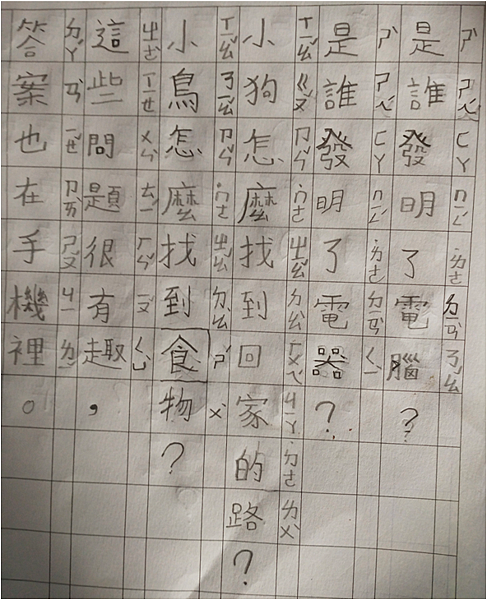 是誰發明了電腦？
是誰發明了電器？
小狗怎麼找到回家的路？
小鳥怎麼找到食物？
這些問題很有趣，
答案也在手機裡。